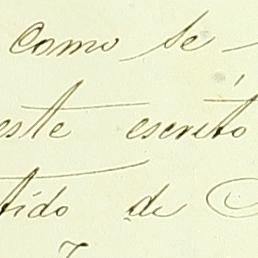 como se
este escrito
tido de